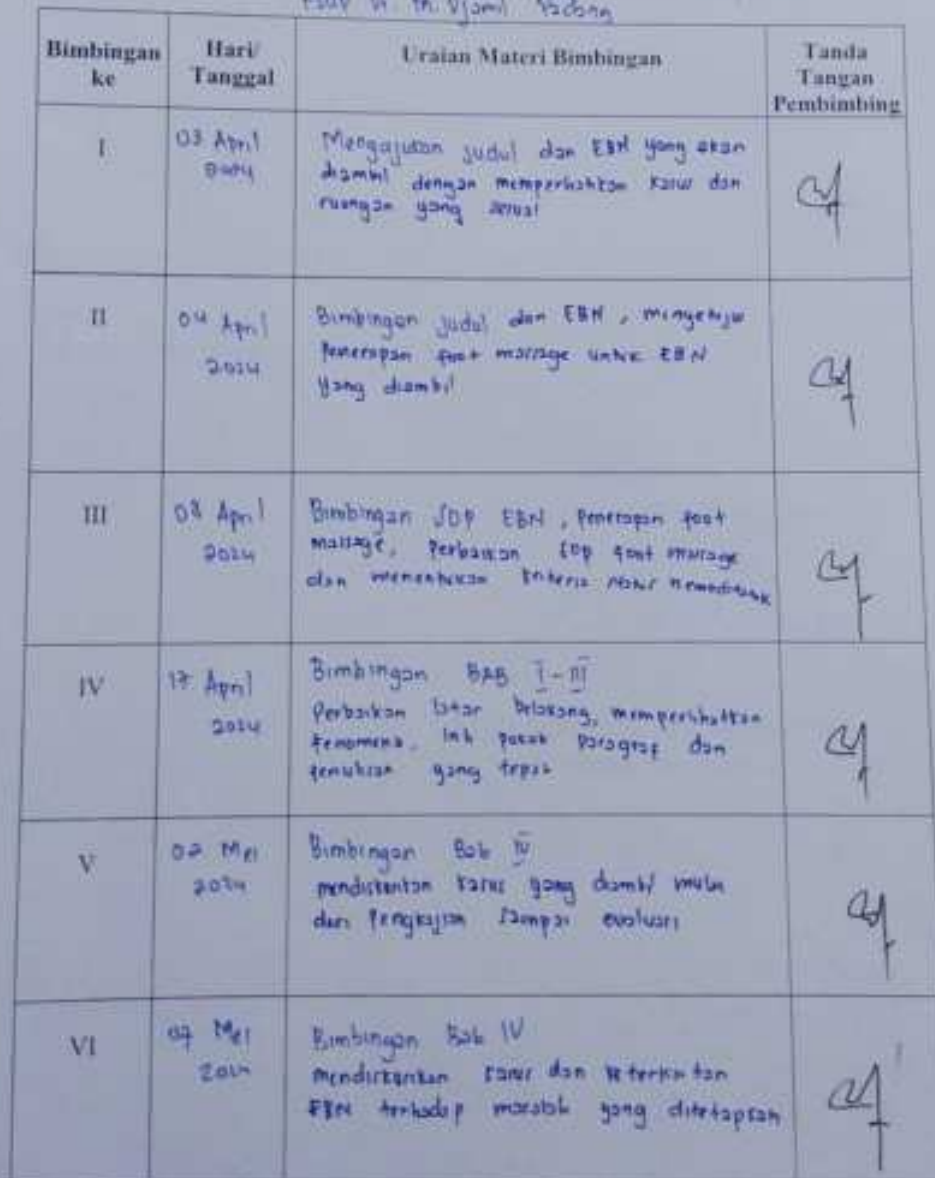 M. Djamil Padang
Bimbingan ke
Hari/ Tanggal
Uraian Materi Bimbingan
Tanda Tangan Pembimbing
I
03 April
2024
Mengajukan judul dan EBN yang akan
diambil dengan memperhatikan kasus dan
ruangan yang sesuai
II
04 April
2024
Bimbingan judul dan EBN, menyetujui
Penerapan foot massage untuk EBN
yang diambil
III
08 April
2024
Bimbingan SOP EBN, Penerapan foot
massage, Perbaikan SOP foot massage
dan menentukan kriteria
IV
17 April
2024
Bimbingan BAB I-III
Perbaikan latar belakang, memperlihatkan
fenomena, inti pokok paragraf dan
penulisan yang tepat
V
02 Mei
2024
Bimbingan Bab IV
mendiskusikan kasus yang diambil mulai
dari Pengkajian sampai evaluasi
VI
07 Mei
2024
Bimbingan Bab IV
mendiskusikan kasus dan keterkaitan
EBN terhadap masalah yang ditetapkan